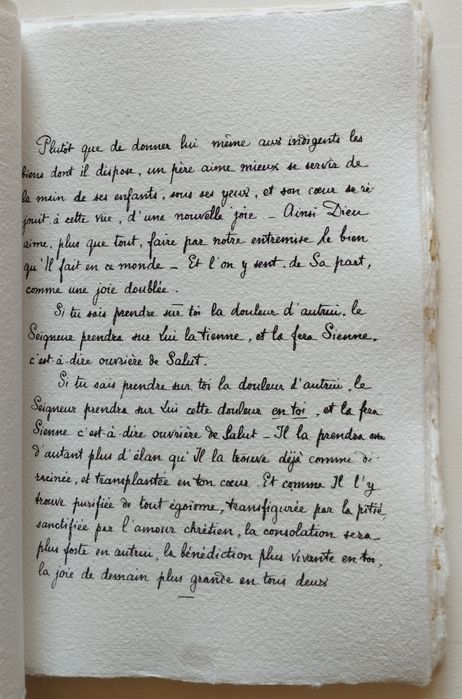 Plutôt que de donner lui même aux indigents les
biens dont il dispose, un père aime mieux se servir de
la main de ses enfants, sous ses yeux, et son cœur se ré
jouit à cette vue, d'une nouvelle joie – Ainsi Dieu
aime, plus que tout, faire par notre entremise le bien
qu'Il fait en ce monde – Et l'on y sent, de Sa part,
comme une joie doublée.
Si tu sais prendre sur toi la douleur d'autrui, le
Seigneur prendra sur Lui la tienne, et la fera Sienne,
c'est-à-dire ouvrière de Salut.
Si tu sais prendre sur toi la douleur d'autrui, le
Seigneur prendra sur Lui cette douleur en toi, et la fera
Sienne c'est-à-dire ouvrière de Salut – Il la prendra
d'autant plus d'élan qu'Il la trouve déjà comme dé
racinée, et transplantée en ton cœur. Et comme Il l'y
trouve purifiée de tout égoïsme, transfigurée par la pitié,
sanctifiée par l'amour chrétien, la consolation sera
plus forte en autrui, la bénédiction plus vivante en toi,
la joie de demain plus grande en tous deux